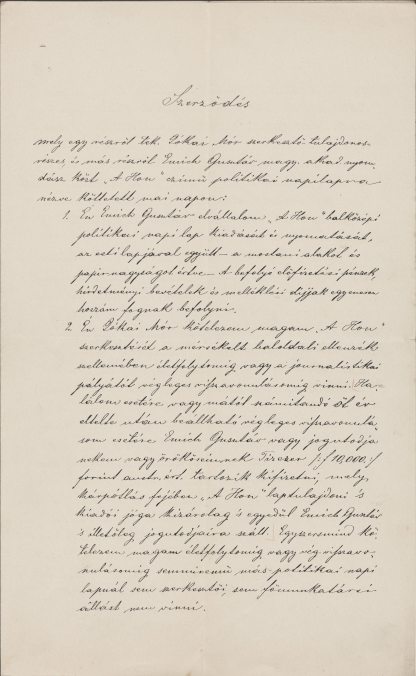 Szerződés
mely egy részről tek. Jókai Mór szerkesztő tulajdonos-
részes, és más részről Emich Gusztáv magy. akad. nyom-
dász közt "A Hon" czimü politikai napilapra
nézve köttetett mai napon:
1. Én Emich Gusztáv elvállalom "A Hon" balközépi
politikai napi lap kiadását és nyomatását,
az esti lapjával együtt – a mostani alakot és
papirnagyságot értve – A befolyó előfizetési pénzek,
hirdetményi bevételek és mellékleti dijjak egyenesen
hozzám fognak befolyni.
2. Én Jókai Mór kötelezem magam "A Hon"
szerkesztését a mérsékelt baloldali ellenzék
szellemében életfolytomig vagy a journalistikai
pályától végleges visszavonulásomig vinni. Ha-
lálom esetére vagy mától számitandó öt év
eltelte után beállható végleges visszavonulá-
som esetére Emich Gusztáv vagy jogutódja
nekem vagy örököseimnek Tizezer /:f 10,000:/
forint austr. ért. tartozik kifizetni, mely
kárpótlás fejében "A Hon" laptulajdoni 's
kiadói joga kizárólag 's egyedül Emich Gusztáv
's illetőleg jogutódjaira száll. Egyszersmind kö-
telezem magam életfolytomig vagy vég visszavo-
nulásomig semminemü más politikai napi
lapnál sem szerkesztői, sem főmunkatársi
állást nem vinni.